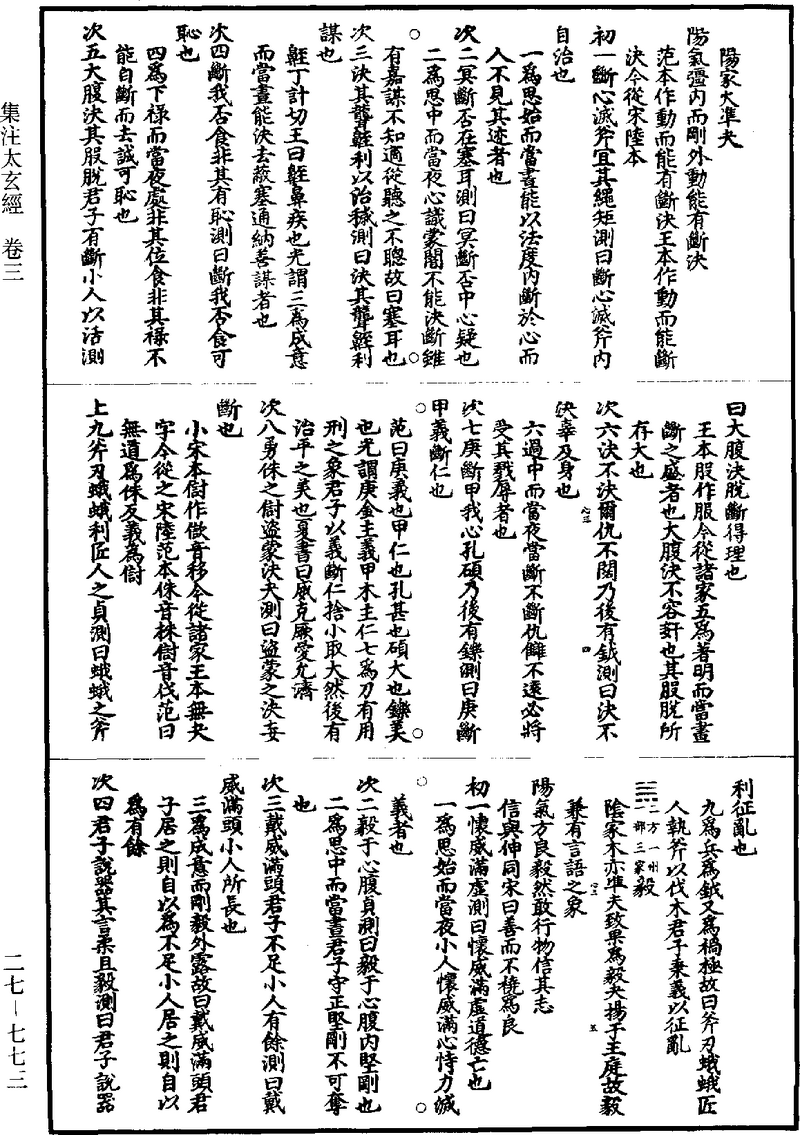 陽家火準夬
陽氣彊內而剛外動能有斷決
范本作動而能有斷決王本作動而能斷
決今從宋陸本
初一斷心滅斧冝其繩矩測曰斷心滅斧內
自治也
一為思始而當晝能以法度內斷於心而
人不見其迹者也
次二冥斷否在塞耳測曰冥斷否中心疑也
二為思中而當夜心識蒙闇不能決斷雖
有嘉謀不知適從聽之不聰故曰塞耳也
次三決其聾𪖙利以治穢測曰決其聾𪖙利
謀也
𪖙丁計切王曰𪖙鼻疾也光謂三為成意
而當晝能決去蔽塞通納善謀者也
次四斷我否食非其有恥測曰斷我否食可
恥也
四為下祿而當夜處非其位食非其祿不
能自斷而去誠可恥也
次五大腹決其股脫君子有斷小人以活測
曰大腹決脫斷得理也
王本股作服今從諸家五為著明而當晝
斷之盛者也大腹決不容姧也其股脫所
存大也
次六決不決爾仇不闊乃後有鉞測曰決不
決辜及身也
六過中而當夜當斷不斷仇讎不遠必將
受其戮辱者也
次七庚斷甲我心孔碩乃後有鑠測曰庚斷
甲義斷仁也
范曰庚義也甲仁也孔甚也碩大也鑠美
也光謂庚金主義甲木主仁七為刀有用
刑之象君子以義斷仁捨小取大然後有
治平之美也夏書曰威克厥愛允濟
次八勇侏之㑜盜蒙決夬測曰盜蒙之決妄
斷也
小宋本㑜作傲音移今從諸家王本無夬
字今從之宋陸范本侏音株㑜音伐范曰
無道為侏反義為㑜
上九斧刃蛾蛾利匠人之貞測曰蛾蛾之斧
利征亂也
九為兵為鉞又為禍極故曰斧刃蛾蛾匠
人執斧以伐木君子秉義以征亂
二方一州部三家毅
陰家木亦準夬致果為毅夬揚于王庭故毅
兼有言語之象
陽氣方良毅然敢行物信其志
信與伸同宋曰善而不橈為良
初一懷威滿虛測曰懷威滿虛道德亡也
一為思始而當夜小人懷威滿心恃力滅
義者也
次二毅于心腹貞測曰毅于心腹內堅剛也
二為思中而當晝君子守正堅剛不可奪
也
次三戴威滿頭君子不足小人有餘測曰戴
威滿頭小人所長也
三為成意而剛毅外露故曰戴威滿頭君
子居之則自以為不足小人居之則自以
為有餘
次四君子說器其言柔且毅測曰君子說器
集注太玄經　卷三
二七—七七三